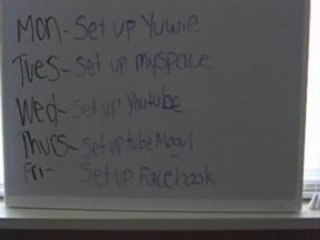 Mon- Set up Yuwie
Tues- Set up myspace
Wed- Set up Youtube
Thurs- Set up tube Mogul
Fri- Set up Facebook